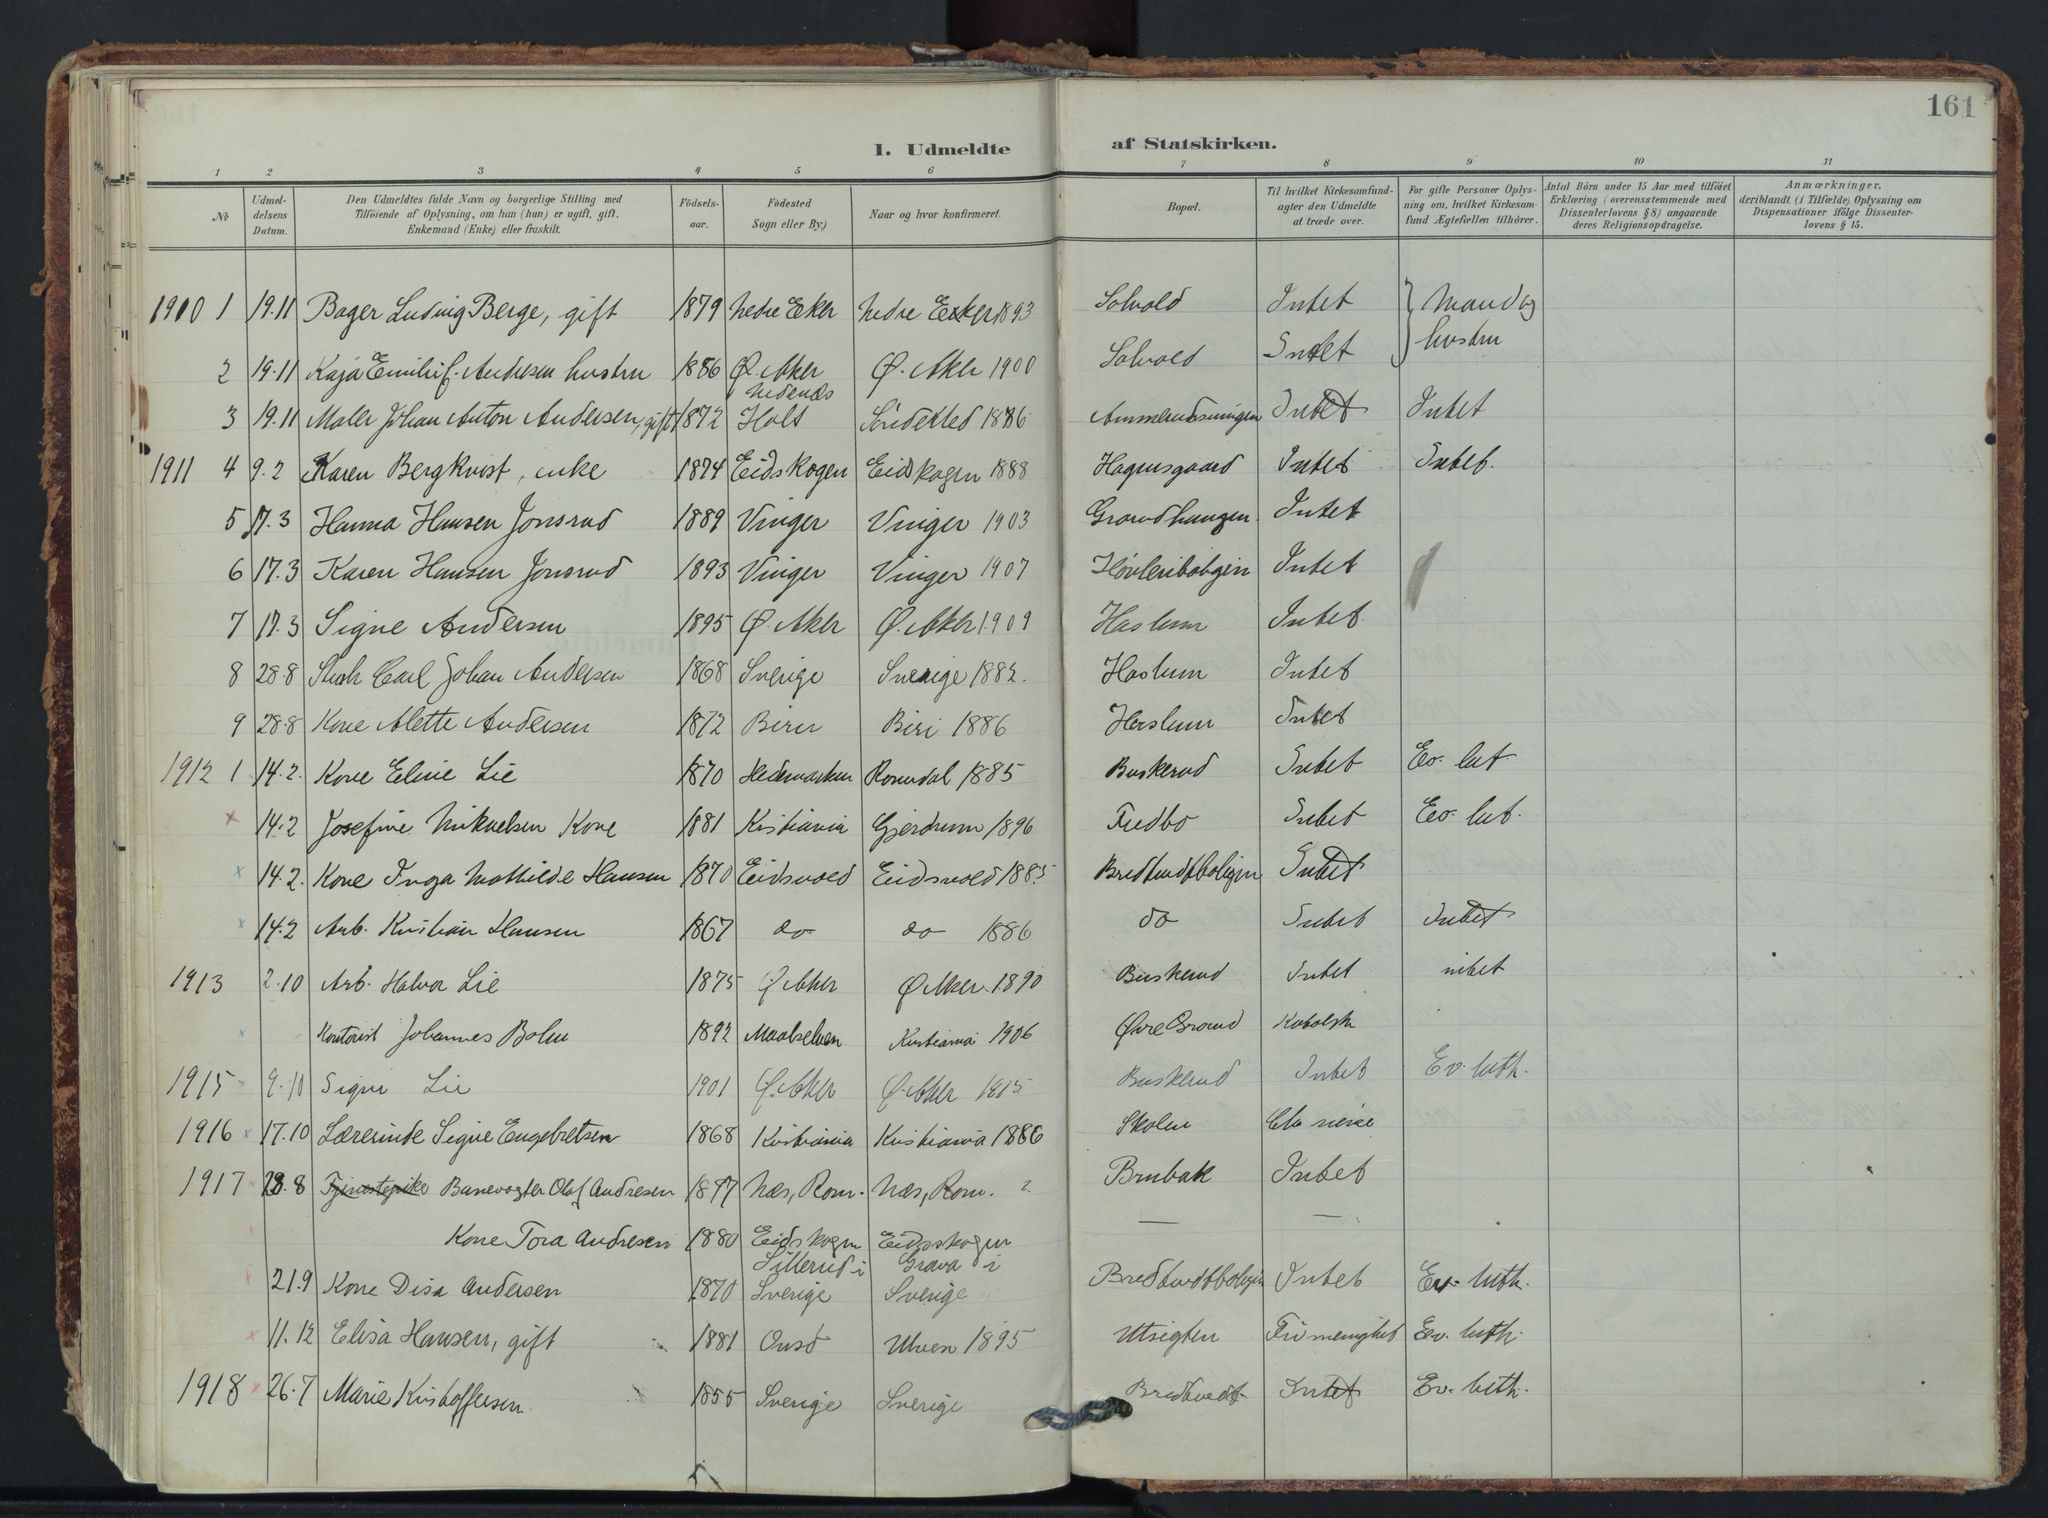 161
1. Udmeldte af Statskirken.
1 2 3 4 5 6 7 8 9 10 11
No
Udmel-
delsens
Datum.
Den Udmeldtes fulde Navn og borgerlige Stilling med
Tilföiende af Oplysning, om han (hun) er ugift, gift,
Enkemand (Enke) eller fraskilt.
Födsels-
aar.
Födested
Sogn eller By.)
Naar og hvor konfirmeret.
Bopæl.
Til hvilket Kirkesamfund-
agter den Udmeldte
at træde over.
For gifte Personer Oplys-
ning om, hvilket Kirkesam-
fund Ægtefællen tilhörer.
Antal Börn under 15 Aar med tilföiet
Erklæring (overensstemmende med
Dissenterlovens § 8) angaaende
deres Religionsopdragelse.
Anmærkninger,
deriblandt (i Tilfælde) Oplysning om
Dispensationer ifölge Dissenter-
lovens § 15.
1910 1 19.11 Bager Ludvig Berge, gift 1879 Nedre Eker Nedre Eker 1893 Solvold Intet Mand og
hustru
2 19.11 Kaja Emilie f. Andresen hustru 1886 Ø. Aker Ø. Aker 1900 Solvold Intet
Nedenes
3 19.11 Maler Johan Anton Andersen, gift 1872 Holt Söndeled 1886 Intet Intet
1911 4 9.2 Karen Bergkvist, enke 1874 Eidskogen Eidskogen 1888 Intet Intet.
5 17.3 Hanna Hansen Jonsrud 1889 Vinger Vinger 1903 Intet
6 17.3 Karen Hansen Jonsrud 1893 Vinger Vinger 1907 Intet
7 17.3 Signe Andersen 1895 Ø. Aker Ø. Aker 1909 Haslum Intet
8 28.8 Carl Johan Andersen 1868 Sverige Sverige 1882. Haslum Intet
9 28.8 Kone Alette Andersen 1872 Birir Biri 1886 Haslum Intet
1912 1 14.2. Kone Eline Lie 1870 Hedemarken Romedal 1885 Buskerud Intet Ev. lut
x 14.2 Josefine Mikaelsen Kone 1881 Kristiania Gjerdrum 1896 Fredbo Intet Ev. lut.
x 14.2. Kone Inga Mathilde Hansen 1870 Eidsvold Eidsvold 1885 Bredtvedtboligen Intet
x 14.2 Arb. Kristian Hansen 1867 do do 1886 do Intet Intet
1913 2.10 Arb. Halvor Lie 1875 Ø Aker Ø Aker 1890 Buskerud Intet intet
Kontorist Johannes Bolm 1892 Maalselven Kristiania 1906 Katolsk
1915 x 9.10 Signe Lie 1901 Ø. Aker Ø. Aker 1915 Buskerud Intet Ev. luth.
1916 x 17.10 Lærerinde Signe Engebretsen 1868 Kristiania Kristiania 1886 Skolen
1917 x 28.8 Tjenestepike Banevogter Olaf Andresen 1877 Næs, Rom. Næs, Rom. ? Brubak Intet
Kone Tora Andresen 1880 Eidskogen Eidsskogen — —
Sillerud i Grava i
x 21.9 Kone Disa Andersen 1870 Sverige Sverige Bredtvedtboligen Intet Ev. luth.
x 11.12 Elisa Hansen, gift 1881 Onsö Ulven 1895 Utsigten Frimenighet Ev. luth.
1918 x 26.7 Marie Kristoffersen 1855 Sverige Sverige Bredtvedt Intet Ev. luth.